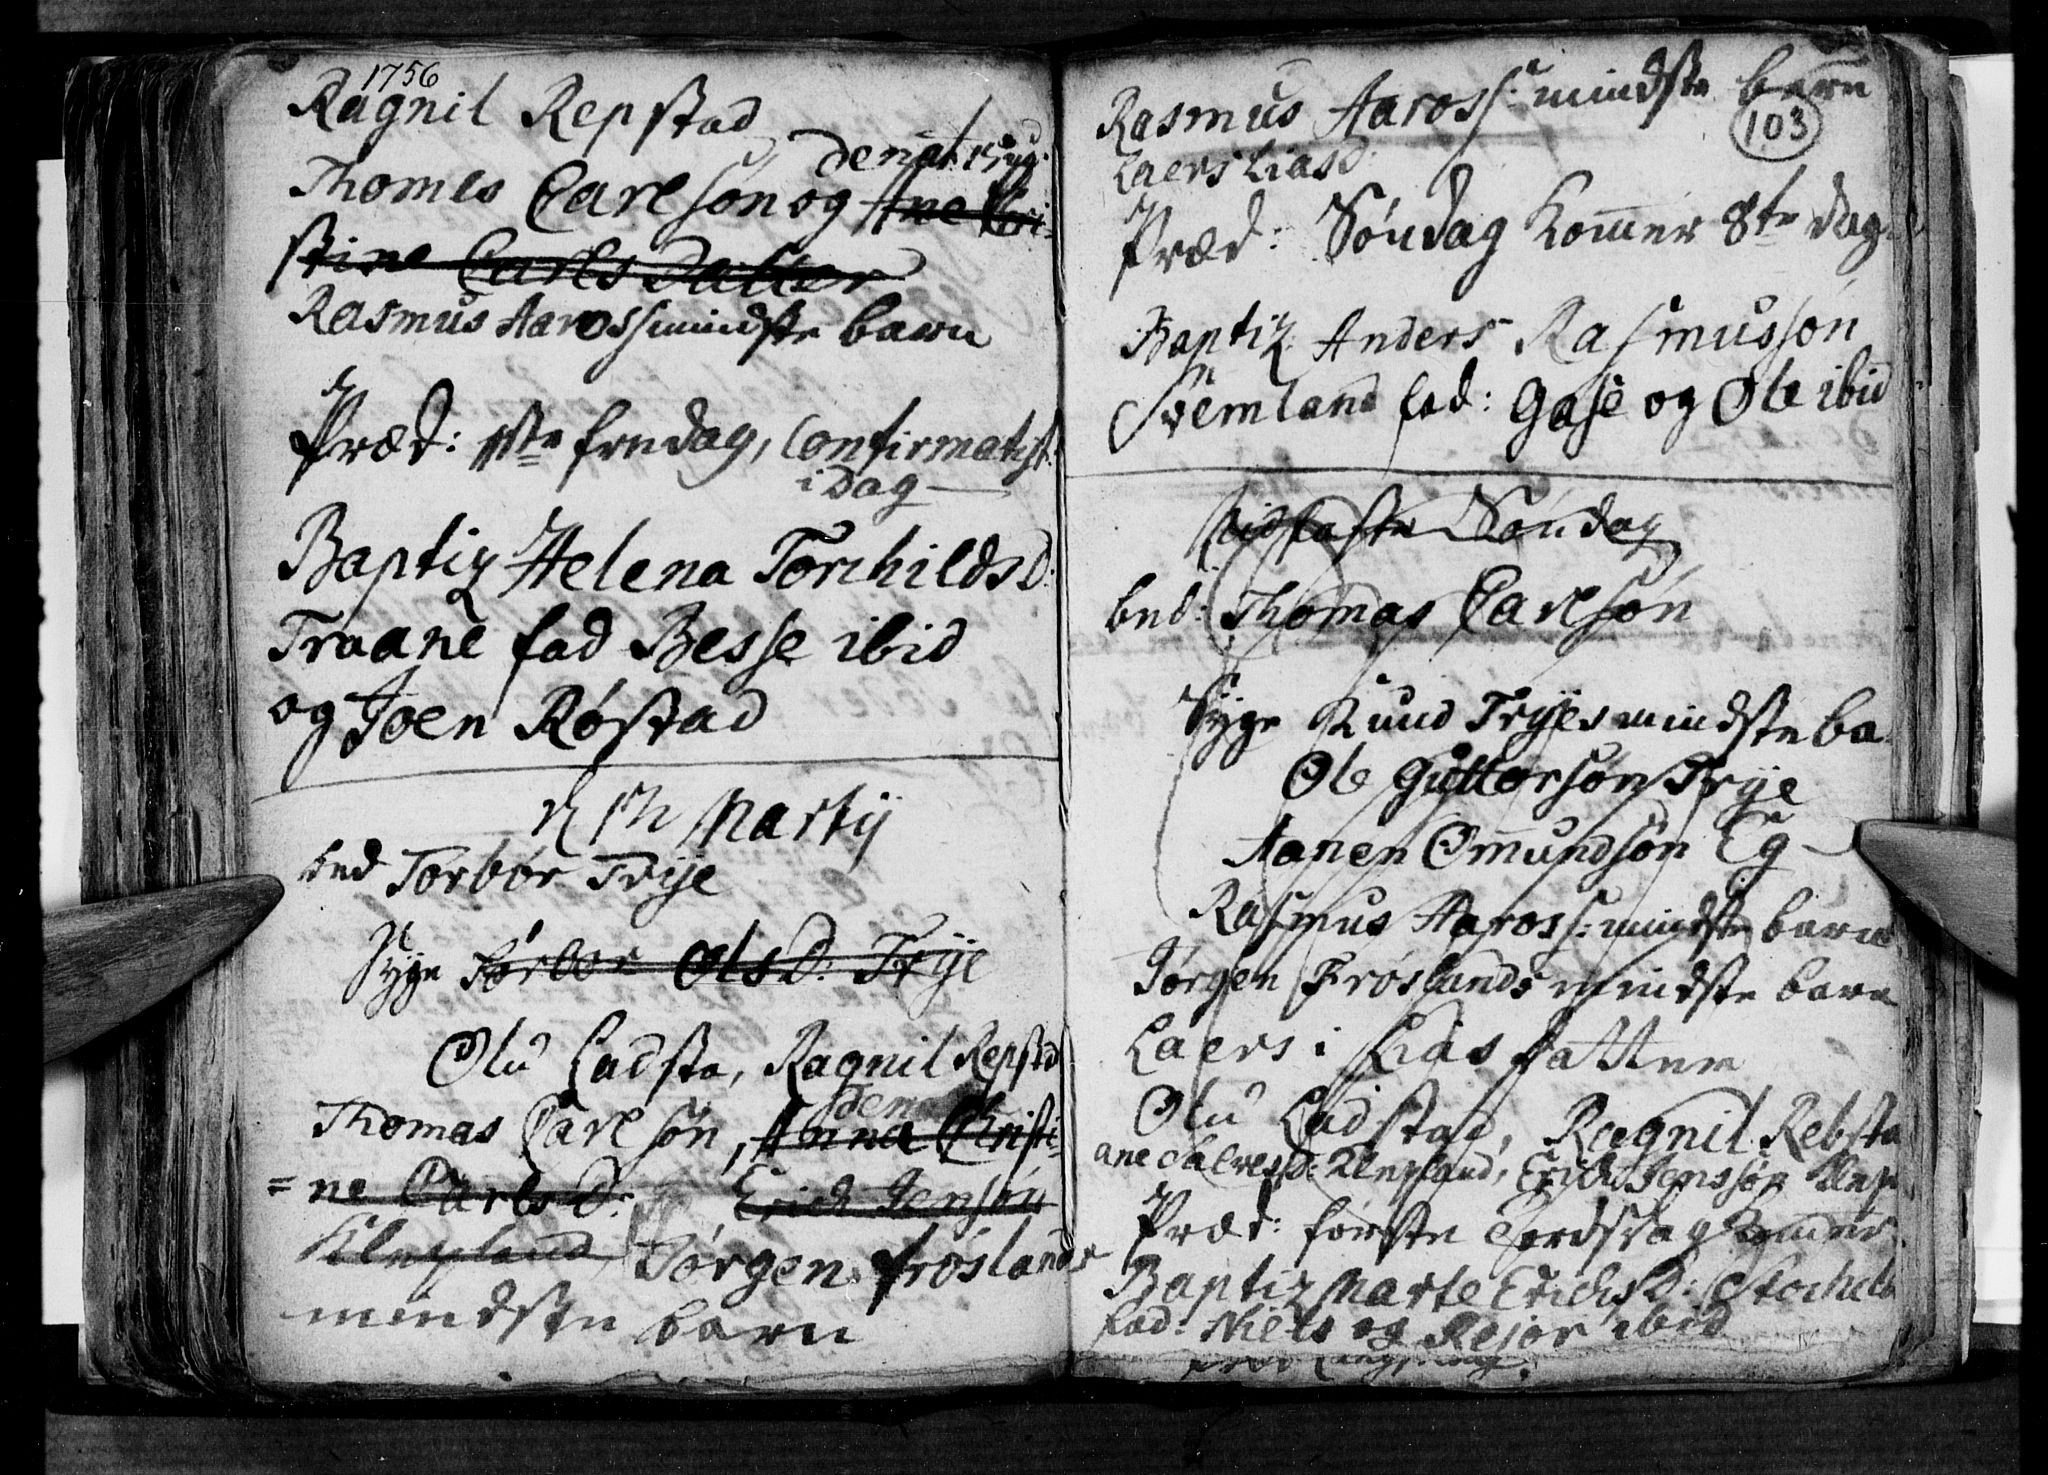 1756
Ragnil Repstad
Thomes Carlsøn og Ane Chri-
stine Carls Datter
Rasmus AarosS mindste barn
Præd: 1ste fredag, Confirmatist.
i Dag
Baptiz Helena Torchilds D:
Traane fad Besse ibid
og Joen Røstad
Martij
bed Torbør Trije
Syge Torbør Ols D: Trije
Olu Ladsta, Ragnil Repsta
Thomas Carlsøn, Anna Christi-
=ne Carls D: Erich Jensøn
Klepland, Jørgen frøslands
mindste barn
103
Rasmus AarosS: mindste barn
Laers Lias D:
Præd: Søndag Kommer 8te dag
Baptiz Anders Rasmussøn
Svemland fad: Gase og Ole ibid
Midfaste Søndag
bed: Thomas Carlsøn
Syge Knud Tryes mindste ba
Ole Guttorsøn Trye
Aanen Ommundsøn Eg
Rasmus AarosS: mindste barn
Jørgen Frøslands mindste barn
Laers i Lias datter
Olu Ladstad, Ragnil Rebsta
ane Salves D: Klepland, Erich Jenssøn Klep
Præd: første Tordsdag Kommer
Baptiz Marte Erichs D: Stochel
fad: Niels og Rejor ibid